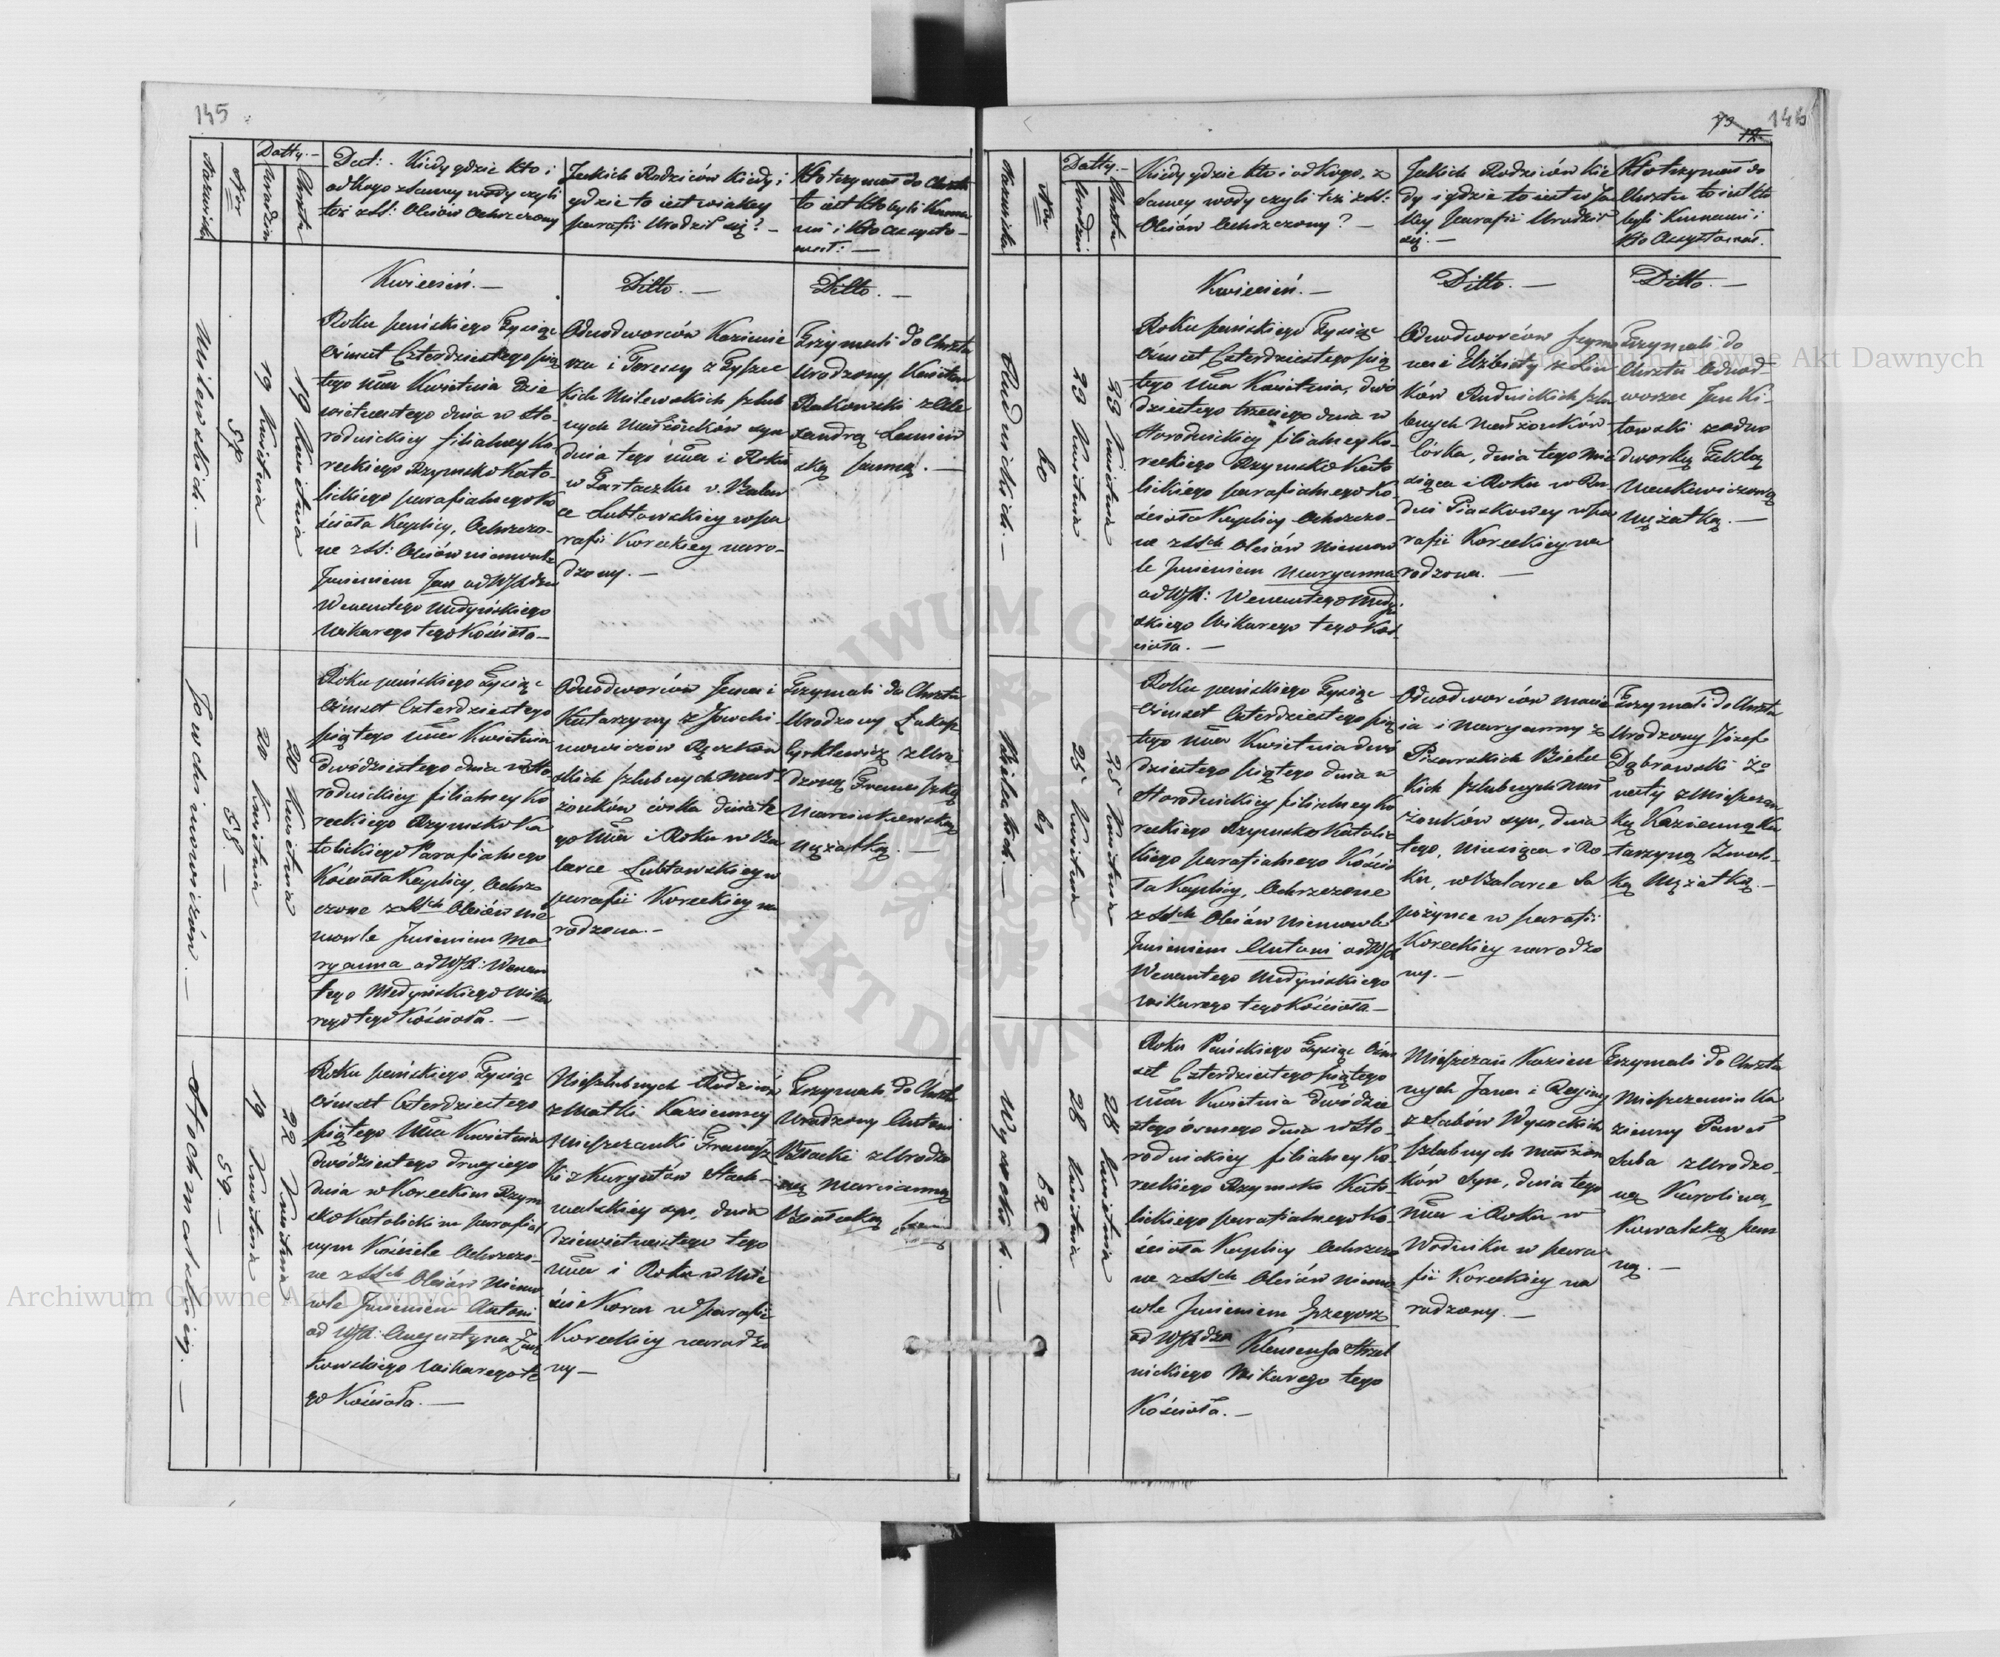 145
Nazwisk
Nor
Datty.—
Urodzin
Chrztu
Dat: Kiedy gdzie kto i
od kogo z samey wody czyli
też z SS: Olejów Ochrzczony
Jakich Rodziców kiedy i
gdzie to iest w iakiey
parafii Urodził się? —
Kto trzymał do Chrztu
to iest kto byli Kuma
mi i kto assysto-
wał: —
Kwiecień. —
Ditto. —
Ditto. —
Milewskich. —
57.
19 Kwietnia
19 Kwietnia
Roku pańskiego Tysiąc
ośmset Czterdziestego pią
tego mca Kwietnia Dzie
więtnastego dnia w Sto-
rodnickiey filialney Ko
reckiego Rzymsko Kato-
lickiego parafialnego Ko
ścioła Kaplicy, Ochrzczo-
ne z SS: Olejów niemowle
Imieniem Jan od WJX dza
Wenantego Medyńskiego
wikarego tego Kościoła—
Odnodworców Kazimie
rza i Teressy z Tysze
kich Milewskich szlub
nych małżonków syn
dnia tego mca i Roku
w Tartaczku v. Balar
ce Lubtowskiey w pa
rafii Koreckiey naro-
dzony. —
Trzymali do Chrztu
Urodzony Kajetan
Rakowski z Ale
xandrą Lewiń
ską panną. —
Jowchimowiczów. —
58. —
20 Kwietnia
20 Kwietnia
Roku pańskiego Tysiąc
ośmset Czterdziestego
piątego mca Kwietnia
dwódziestego dnia w Sto
rodnickiey filialney Ko
reckiego Rzymsko Ka
tolickiego Parafialnego
Kościoła Kaplicy, Ochrz
czone z SSch Olejów nie
mowle Imieniem Ma
ryanna od WJX: Wenan
tego Medyńskiego wika
rego tego Kościoła. —
Odnodworców Jana i
Katarzyny z Jowchi
mowiczów
szlubnych mał
żonków córka dnia te
go mca i Roku w Ba
larce Lubtowskiey w
parafii Koreckiey na
rodzona. —
Trzymali do Chrztu
Urodzony Łukasz
z Uro
dzoną Franciszką
Marcinkowską
mężatką. —
Stochmalskiey. —
59. —
19 Kwietnia
22 Kwietnia
Roku pańskiego Tysiąc
ośmset Czterdziestego
piątego mca Kwietnia
dwódziestego drugiego
dnia w Koreckim Rzym
sko Katolickim parafial
nym Kościele Ochrzczo-
ne z SSch Olejów Niemo
wle Imieniem Antoni
od WJX: Augustyna
kowskiego wikarego te
go Kościoła. —
Nieszlubnych Rodziców
z Matki Kazienney
mieszczanki Francisz
ki z
syn, dnia
dziewiętnastego tego
mca i Roku w Mie
ście Korcu w parafii
Koreckiey narodzo
ny —
Trzymali do Chrztu
Urodzony Antoni
z Urodzo
ną Marcianną
146
Nazwiska
Nor
Datty. —
Urodzin
Chrztu
Kiedy gdzie kto i od kogo, z
samey wody czyli też z SS:
Olejów Ochrzczony? —
Jakich Rodziców Kie
dy i gdzie to iest w Ja
kiey Parafii Urodził
się. —
Kto trzymał do
Chrztu to iest kto
byli Kumami i
kto Assystował.
Kwiecień. —
Ditto. —
Ditto. —
Rudnickich. —
60
23 Kwietnia
23 Kwietnia
Roku pańskiego Tysiąc
ośmset Czterdziestego pią
tego mca Kwietnia, dwó
dziestego trzeciego dnia w
Storodnickiey filialney Ko-
reckiego Rzymsko Kato
lickiego parafialnego Ko-
ścioła Kaplicy Ochrzczo-
ne z SSch Olejów Niemow
le Imieniem Maryanna
od WJX: Wenantego Medyń
skiego Wikarego tego Koś
cioła. —
Odnodworców Szymo
na i Elżbiety z Lin
ków Rudnickich szlu
bnych małżonków
córka, dnia tego mie
siąca i Roku w Ru
dni Piaskowey w pa
rafii Koreckiey na
rodzona. —
Trzymali do
Chrztu Odnod-
worzec Jan Ki-
towski z odno
dworką Teklą
mężatką. —
Bielskich. —
61
25 Kwietnia
25 Kwietnia
Roku pańskiego Tysiąc
ośmset Czterdziestego pią
tego mca Kwietnia dwó
dziestego piątego dnia w
Storodnickiey filialney Ko
reckiego Rzymsko Katolic
kiego parafialnego Kościo
ła Kaplicy, Ochrzczone
z SSch Olejów Niemowle
Imieniem Antoni od WJX
Wenantego Medyńskiego
wikarego tego Kościoła. —
Odnodworców Macie
ia i Maryanny z
Pisarskich Biels
kich szlubnych mał
żonków syn, dnia
tego, miesiąca i Ro
ku, w Balarce Sa
pożynce w parafii
Koreckiey narodzo
ny. —
Trzymali do Chrztu
Urodzony Józef
Dąbrowski
z Mieszczan
ką Kazienną Ka
tarzyną
ką Mężatką. —
Wysockich. —
62
28 Kwietnia
28 Kwietnia
Roku Pańskiego Tysiąc Ośm
set Czterdziestego piątego
mca Kwietnia dwódzie
stego ósmego dnia w Sto-
rodnickiey filialney Ko-
reckiego Rzymsko Kato-
lickiego parafialnego Ko-
ścioła Kaplicy Ochrzczo
ne z SSch Olejów Niemo
wle Imieniem Grzegorz
od WJX dza Klemensa Strzel
nickiego Wikarego tego
Kościoła. —
Mieszczan Kazien
nych Jana i Reginy
z Sabów Wysockich
szlubnych małżon
ków Syn, dnia tego
mca i Roku w
Wodniku w para
fii Koreckiey na
rodzony. —
Trzymali do Chrztu
Mieszczanin Ka
zienny Paweł
Saba z Urodzo-
ną Karoliną
Kowalską pan
ną. —
Archiwum Główne Akt Dawnych
Archiwum Główne Akt Dawnych